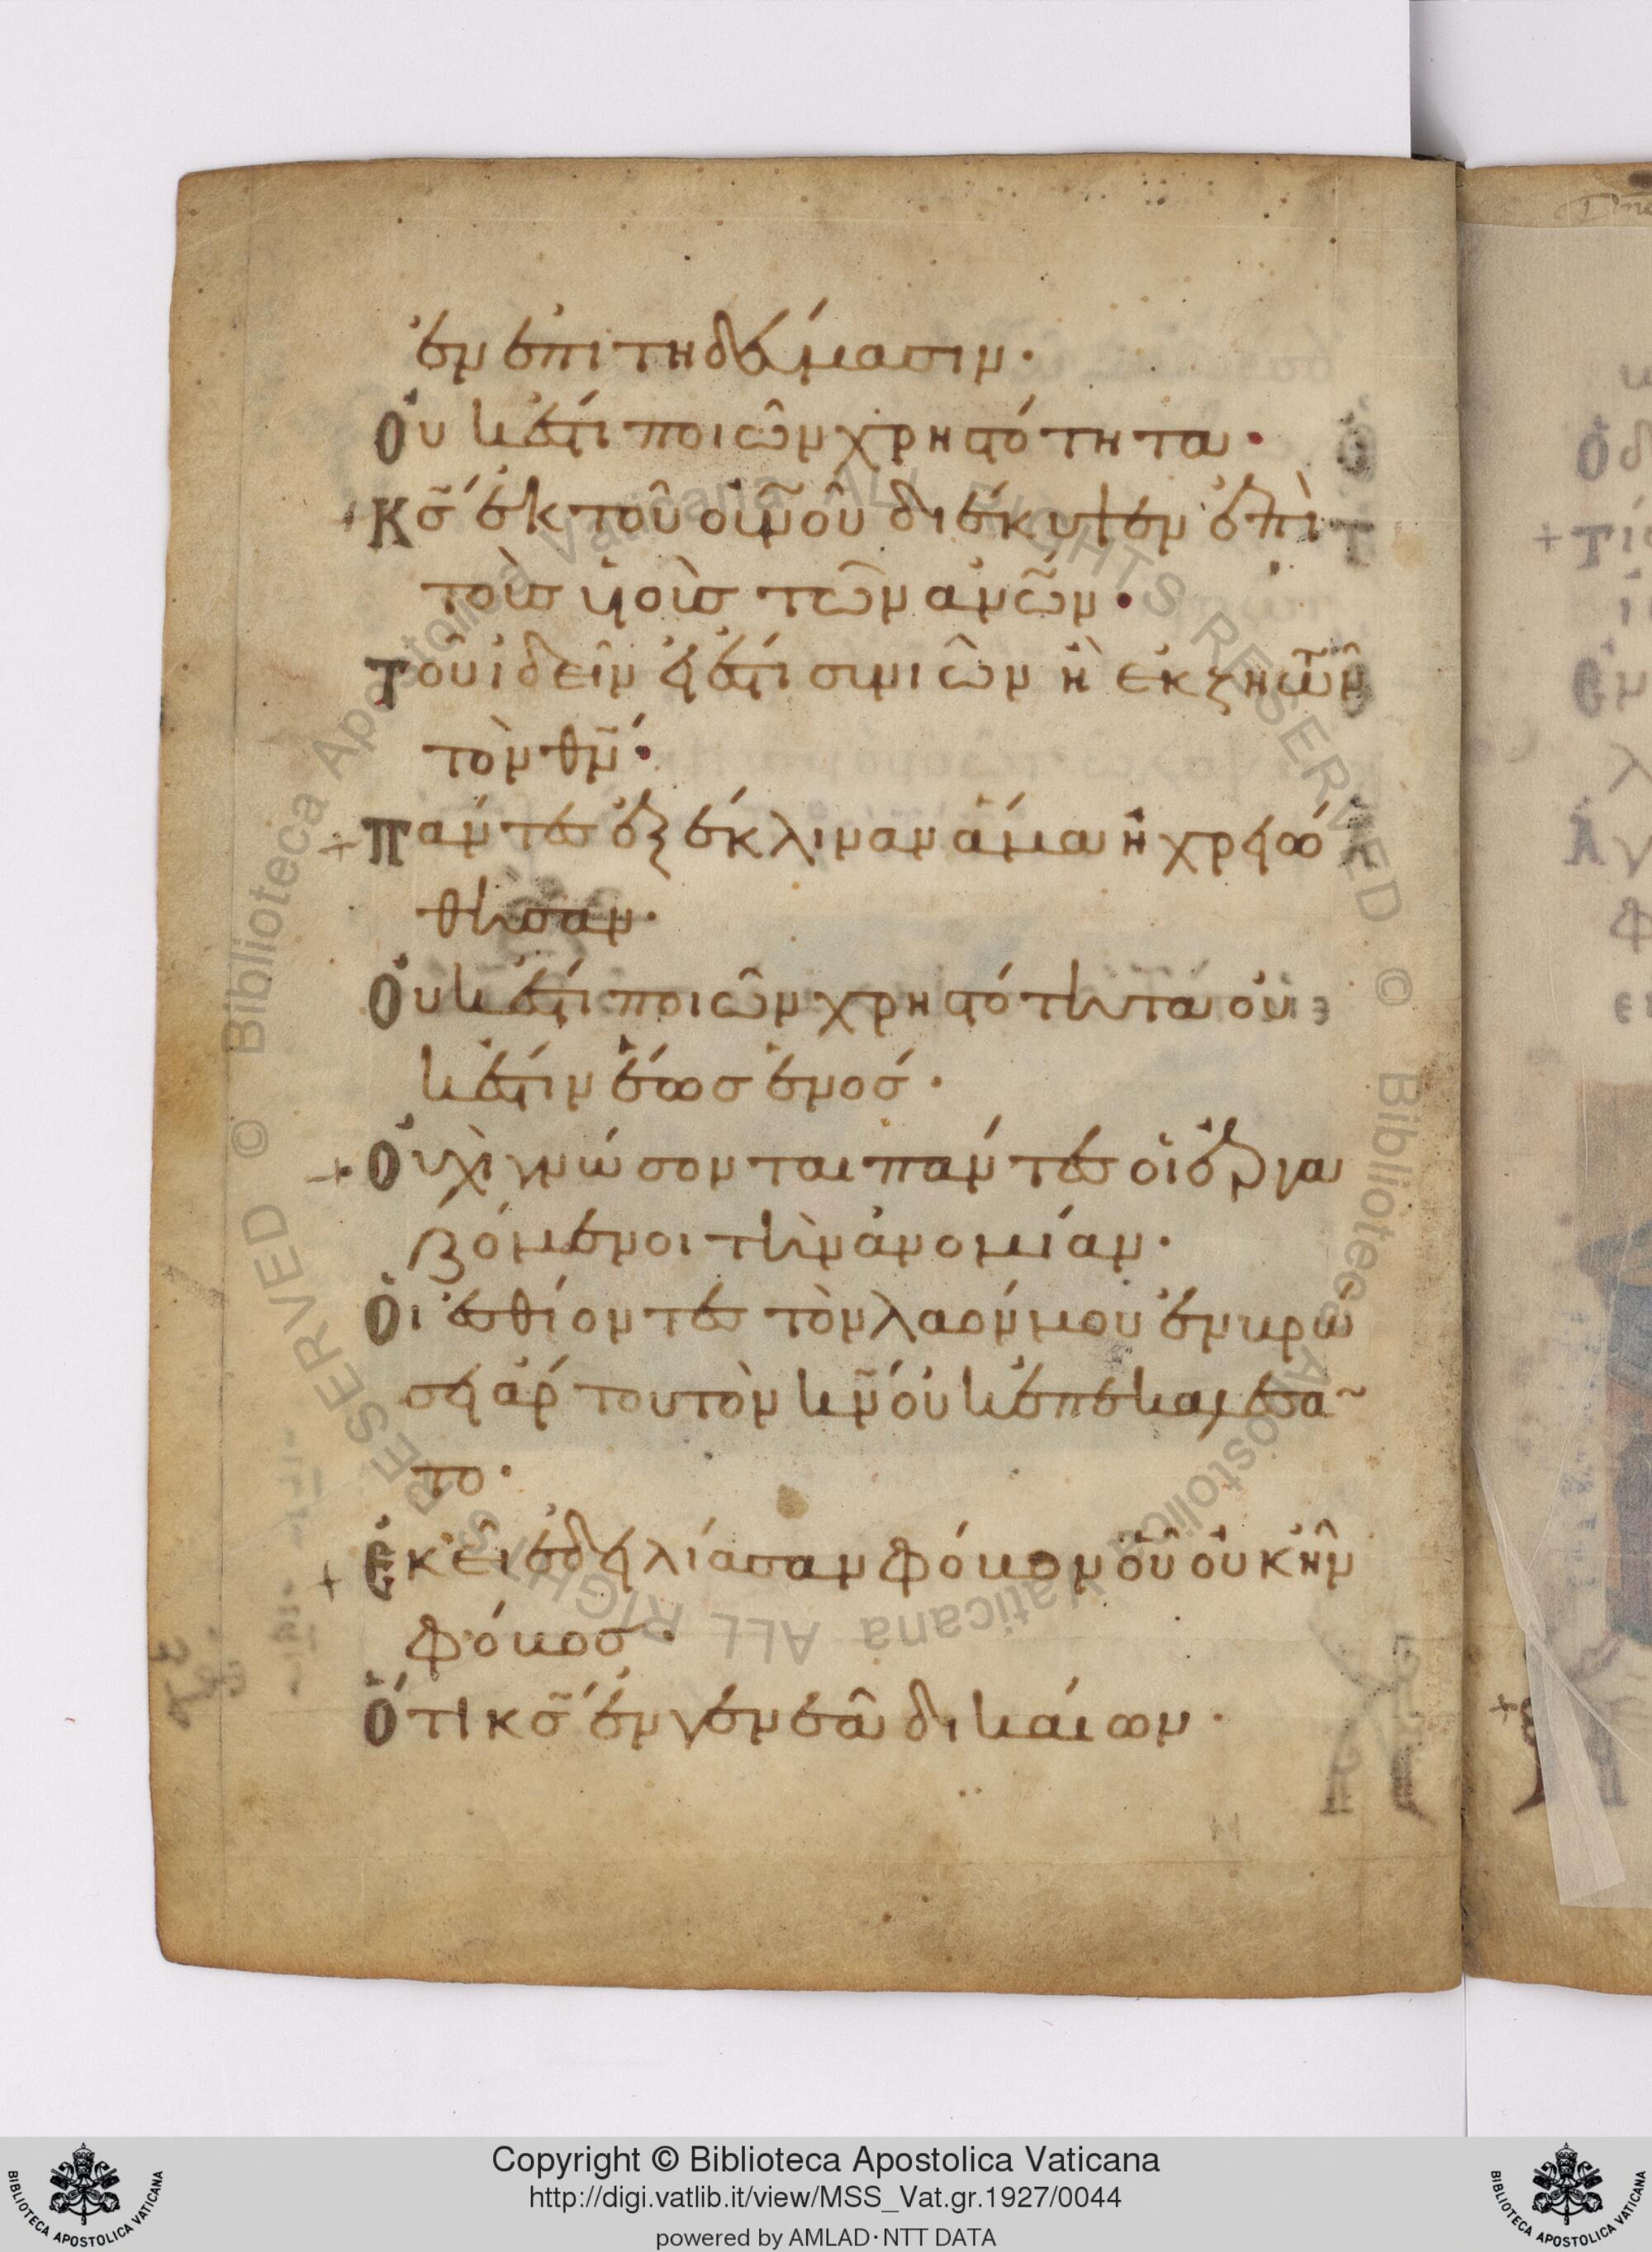 ἐν ἐπιτηδεύμασιν·
Οὐκ ἔστι ποιῶν χρηστότητα·
Κ̅ς̅ ἐκ τοῦ οὐ̅ν̅οῦ διέκυψεν ἐπὶ
τοὺς υἱοὺς τῶν ἀν̅ῶν·
Τοῦ ἰδεῖν εἰ ἔστι συνιῶν ἢ ἐκζητῶν
τὸν θ̅ν̅·
Πάντες ἐξέκλιναν ἅμα ἠχρειώ
θησαν·
Οὐκ ἔστι ποιῶν χρηστότητα οὐ
κ ἔστιν ἕως ἑνός·
Οὐχὶ γνώσονται πάντες οἱ ἐργα
ζόμενοι τὴν ἀνομίαν·
Οἱ ἐσθίοντες τὸν λαόν μου ἐν βρώ
σει ἄρτου τὸν κ̅ν̅ οὐκ ἐπεκαλέσα
το·
Ἐκεῖ ἐδειλίασαν φόβον οὗ οὐκ ἦν
φόβος·
Ὅτι κ̅ς̅ ἐν γενεᾷ δικαίων·
Copyright © Biblioteca Apostolica Vaticana
http://digi.vatlib.it/view/MSS_Vat.gr.1927/0044
powered by AMLAD·NTT DATA
BIBLIOTECA APOSTOLICA VATICANA
BIBLIOTECA APOSTOLICA VATICANA
© Biblioteca Apostolica Vaticana ALL RIGHTS RESERVED © Biblioteca Apostolica Vaticana ALL RIGHTS RESERVED